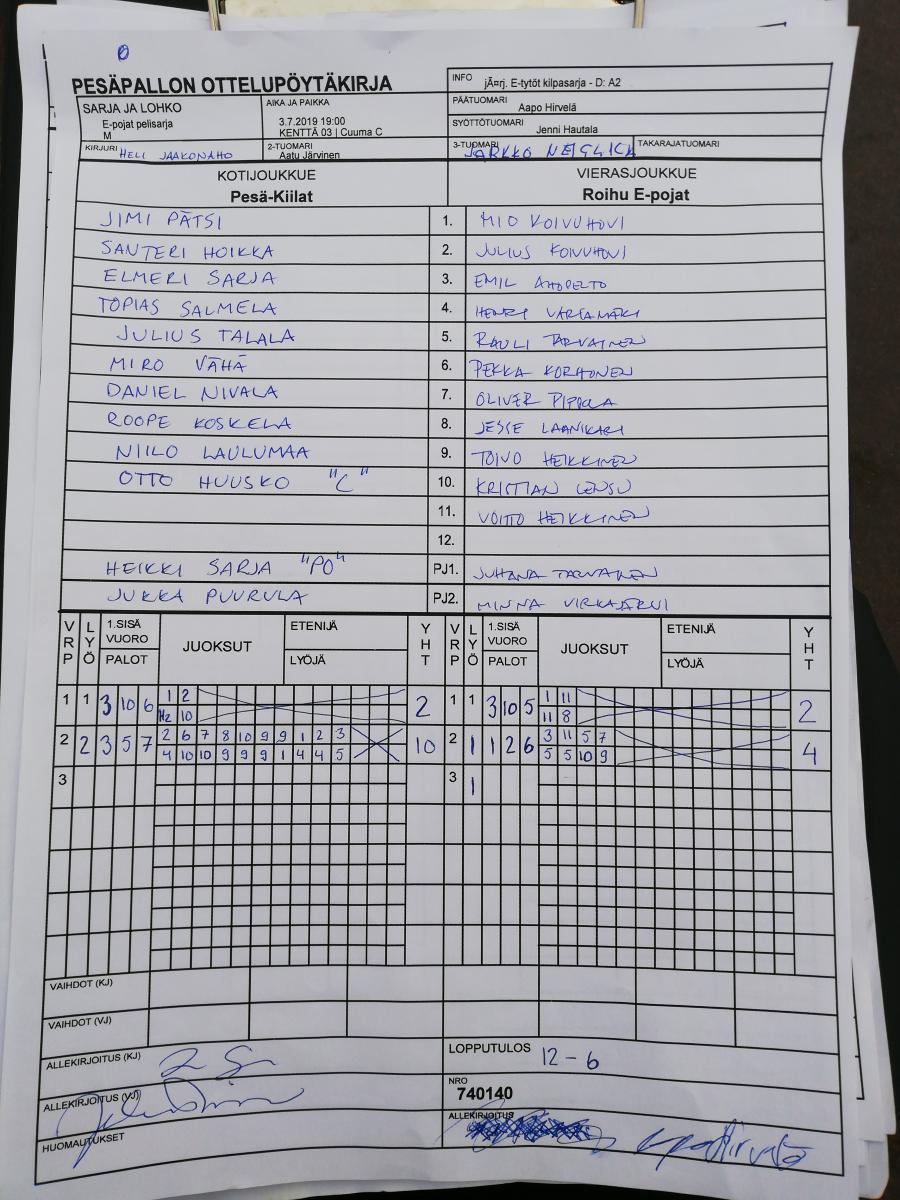 0
PESÄPALLON OTTELUPÖYTÄKIRJA
INFO jÃ¤rj. E-tytöt kilpasarja - D: A2
SARJA JA LOHKO
E-pojat pelisarja
M
AIKA JA PAIKKA
3.7.2019 19:00
KENTTÄ 03 | Cuuma C
PÄÄTUOMARI Aapo Hirvelä
SYÖTTÖTUOMARI Jenni Hautala
KIRJURI HELI JAAKONAHO
2-TUOMARI Aatu Järvinen
3-TUOMARI JARKKO NEIGLICK
TAKARAJATUOMARI
KOTIJOUKKUE VIERASJOUKKUE
Pesä-Kiilat Roihu E-pojat
JIMI PÄTSI 1. MIO KOIVUHOVI
SANTERI HOIKKA 2. JULIUS KOIVUHOVI
ELMERI SARJA 3. EMIL AHOPELTO
TOPIAS SALMELA 4. HENRI VARJAMÄKI
JULIUS TALALA 5. RAULI TARVAINEN
MIRO VÄHÄ 6. PEKKA KORHONEN
DANIEL NIVALA 7. OLIVER PIPPOLA
ROOPE KOSKELA 8. JESSE LAANIKARI
NIILO LAULUMAA 9. TOIVO HEIKKINEN
OTTO HUUSKO "C" 10. KRISTIAN LENSU
11. VOITTO HEIKKINEN
12.
HEIKKI SARJA "PO" PJ1. JUHANA TARVAINEN
JUKKA PUURULA PJ2. MINNA VIRKAJÄRVI
VRP LYÖ 1.SISÄ VUORO PALOT JUOKSUT ETENIJÄ LYÖJÄ YHT VRP LYÖ 1.SISÄ VUORO PALOT JUOKSUT ETENIJÄ LYÖJÄ YHT
1 1 3 10 6 1 2 2 1 1 3 10 5 1 11 2
H2 10 11 8
2 2 3 5 7 2 6 7 8 10 9 9 1 2 3 10 2 1 1 2 6 3 11 5 7 4
4 10 10 9 9 9 1 4 4 5 5 5 10 9
3 3 1
VAIHDOT (KJ)
VAIHDOT (VJ)
ALLEKIRJOITUS (KJ)
LOPPUTULOS 12-6
ALLEKIRJOITUS (VJ)
NRO
740140
HUOMAUTUKSET
ALLEKIRJOITUS